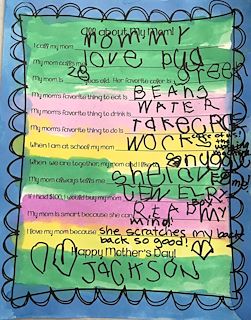 All about My Mom!
I call my mom MOMMY
My mom calls me love bug
My mom is 28 years old. Her favorite color is green
My mom's favorite thing to eat is BEANS
My mom's favorite thing to drink is WATER
My mom's favorite thing to do is takeCARe
When I am at school my mom WORKS
When we are together, my mom and I like snuggl
My mom always tells me she love
If I had $100, I would buy my mom JEWELRY
My mom is smart because she can
mind
I love my mom because she scratches my back
back so good!
Happy Mother's Day!
JACKSON